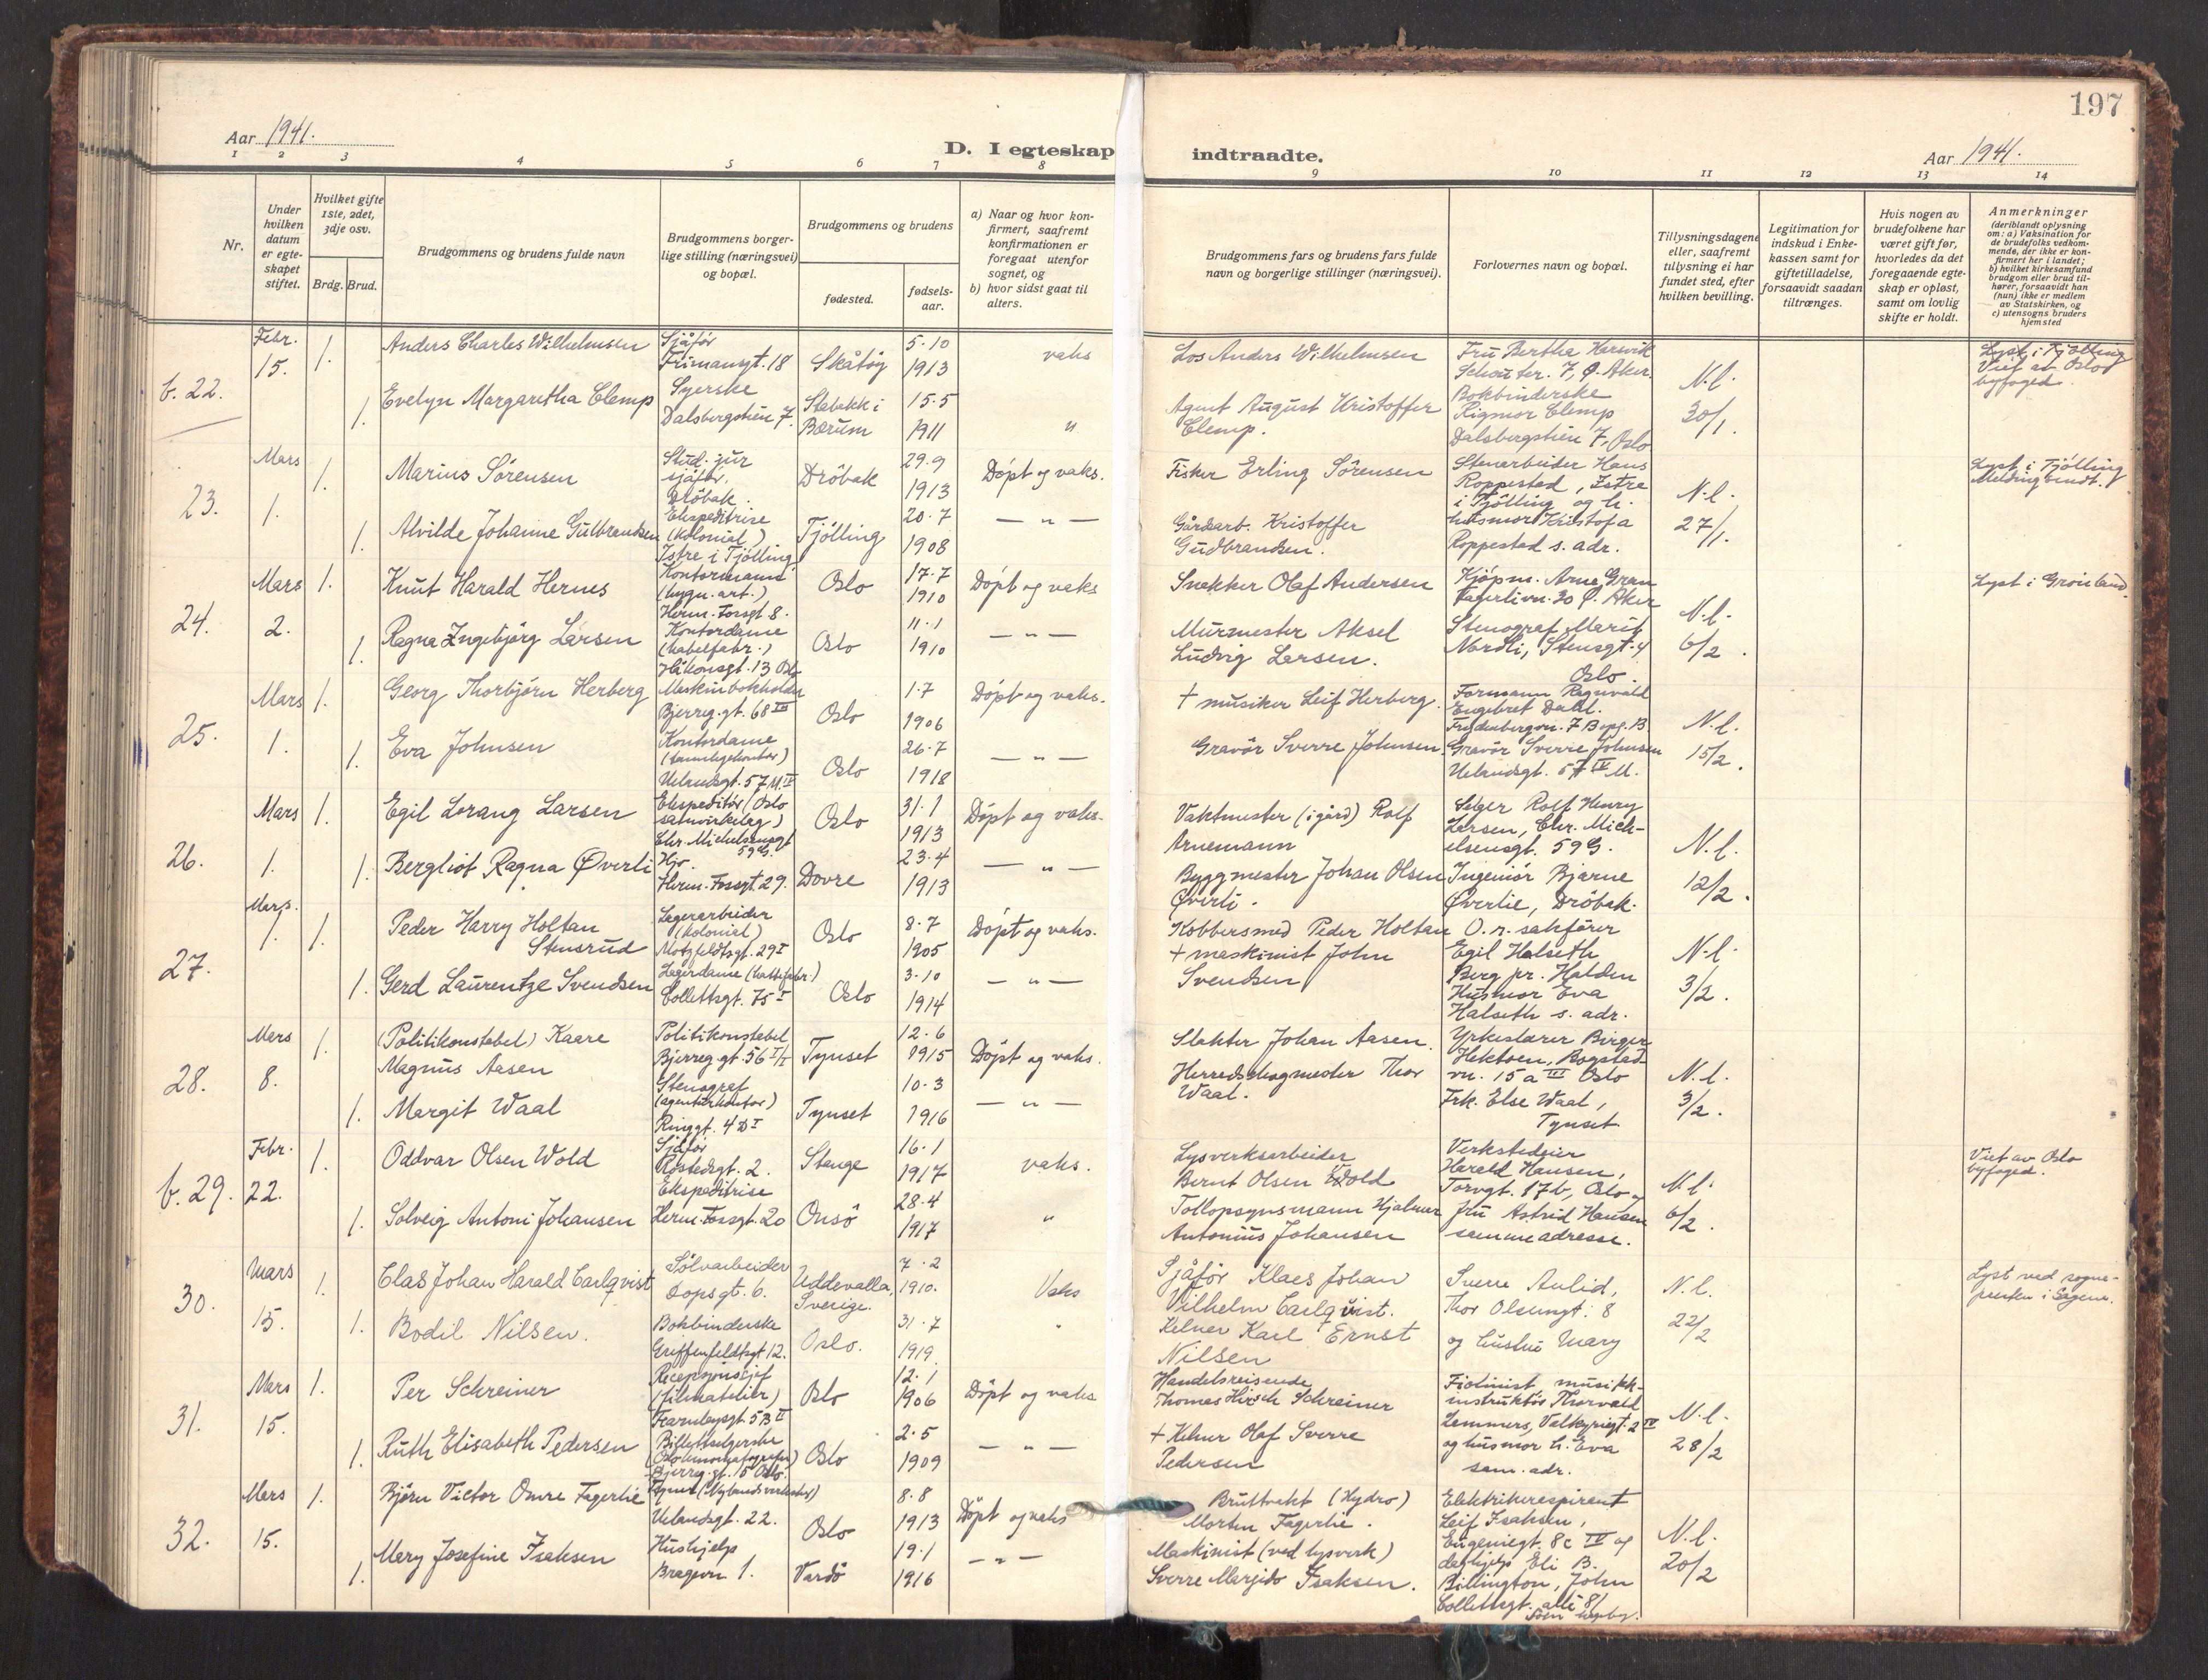 197
Aar 1941.
D. I egteskap indtraadte.
Aar 1941.
1 2 3 4 5 6 7 8 9 10 11 12 13 14
Nr.
Under hvilken datum er egteskapet stiftet.
Hvilket gifte 1ste, 2det, 3dje osv.
Brdg. Brud.
Brudgommens og brudens fulde navn
Brudgommens borgerlige stilling (næringsvei) og bopæl.
Brudgommens og brudens
fødested.
fødselsaar.
a) Naar og hvor konfirmert, saafremt konfirmationen er foregaat utenfor sognet, og
b) hvor sidst gaat til alters.
Brudgommens fars og brudens fars fulde navn og borgerlige stillinger (næringsvei).
Forlovernes navn og bopæl.
Tillysningsdagene eller, saafremt tillysning ei har fundet sted, efter hvilken bevilling.
Legitimation for indskud i Enkekassen samt for giftetilladelse, forsaavidt saadan tiltrænges.
Hvis nogen av brudefolkene har været gift før, hvorledes da det foregaaende egteskap er opløst, samt om lovlig skifte er holdt.
Anmerkninger (deriblandt oplysning om: a) Vaksination for de brudefolks vedkommende, der ikke er konfirmert her i landet; b) hvilket kirkesamfund brudgom eller brud tilhører, forsaavidt han (hun) ikke er medlem av Statskirken, og c) utensogns bruders hjemsted
b. 22. Febr. 15. 1. Anders Charles Wilhelmsen
Sjåfør
Frimansgt. 18 Skåtøy 5.10 1913 vaks
Los Anders Wilhelmsen
Fru Bertha Hervik
Schouter. 7, Ø. Aker.
N.l. 30/1.
Lyst i Tjølling
Viet av Oslo
byfoged.
1. Evelyn Margaretha Clemp
Syerske
Dalsbergstien 7. Stabekk i Bærum 15.5 1911 "
Agent August Kristoffer
Clemp.
Bokbinderske
Rigmor Clemp
Dalsbergstien 7, Oslo
23. Mars 1. 1. Marius Sørensen
Stud. jur
sjåfør.
Drøbak. Drøbak 29.9 1913 Døpt og vaks.
Fisker Erling Sørensen
Stenarbeider Hans
Roppestad, Istre
i Tjølling og h.
N.l. 27/1.
Lyst i Tjølling
Melding sendt.
1. Alvilde Johanne Gulbrandsen
Ekspeditrise
(kolonial)
Istre i Tjølling Tjølling 20.7 1908 — " —
Gårdsarb. Kristoffer
Gudbrandsen.
husmor Kristofa
Roppestad s. adr.
24. Mars 2. 1. Knut Harald Hernes
Kontormann
(bygn. art.)
Herm. Fossgt 8. Oslo 17.7 1910 Døpt og vaks
Snekker Olaf Andersen
Kjøpm. Arne Gran
Fagerlivn. 30 Ø. Aker
N.l. 6/2.
Lyst i Grønland.
1. Ragna Ingebjørg Larsen
Kontordame
(kabelfabr.)
Håkonsgt. 13 Oslo Oslo 11.1 1910 — " —
Murmester Aksel
Ludvig Larsen.
Stenograf Marit
Nordli, Stensgt. 4
Oslo.
25. Mars 1. 1. Georg Thorbjørn Herberg
Maskinbokholder
Bjerreg. gt. 68 III Oslo 1.7 1906 Døpt og vaks.
+ musiker Leif Herberg.
Formann Ragnvald
Engebret Dahl.
Frydenbergvn. 7 B opg. B
N.l. 15/2.
1. Eva Johnsen
Kontordame
(tannlegekontor)
Uelandsgt. 57 M. IV Oslo 26.7 1918 — " —
Gravør Sverre Johnsen.
Gravør Sverre Johnsen
Uelandsgt. 57 IV M.
26. Mars 1. 1. Egil Lorang Larsen
Ekspeditør (Oslo
samvirkelag)
Chr. Michelsensgt
59 G. Oslo 31.1 1913 Døpt og vaks.
Vaktmester (i gård) Rolf
Arnemann
Selger Rolf Henry
Larsen, Chr. Mich-
elsensgt. 59 G.
N.l. 12/2.
1. Bergliot Ragna Øverli
Hjv.
Herm. Fossgt. 29. Dovre 23.4 1913 — " —
Byggmester Johan Olsen
Øverli.
Ingeniør Bjarne
Øverlie, Drøbak.
27. Mars. 1. 1. Peder Harry Holtan
Stensrud
Lagerarbeider
(kolonial)
Motzfeldtsgt. 29 I Oslo 8.7 1905 Døpt og vaks.
Kobbersmed Peder Holtan
O.r. sakfører
Egil Halseth
Berg pr. Halden
N.l. 3/2.
1. Gerd Laurentze Svendsen
Lagerdame (hattefabr.)
Collettsgt. 75 I Oslo 3.10 1914 — " —
+ maskinist John
Svendsen
Husmor Eva
Halseth s. adr.
28. Mars 8. 1. (Politikonstabel) Kaare
Magnus Aasen
Politikonstabel
Bjerreg. gt. 56 I/I Tynset 12.6 1915 Døpt og vaks.
Slakter Johan Aasen.
Yrkeslærer Birger
Hektoen, Bogstad-
vn. 15 a III Oslo
N.l. 3/2.
1. Margit Waal
Stenograf
(agenturkontor)
Ringgt. 4 D I Tynset 10.3 1916 — " —
Herredskogmester Thor
Waal.
Frk. Else Waal,
Tynset.
b. 29. Febr. 22. 1. Oddvar Olsen Wold
Sjåfør
Rostedsgt. 2. Stange 16.1 1917 vaks.
Lysverksarbeider
Bernt Olsen Wold
Verkstedeier
Harald Hansen,
Torvgt. 17 b, Oslo og
N.l. 6/2.
Viet av Oslo
byfoged.
1. Solveig Antoni Johansen
Ekspeditrise
Herm. Fossgt. 20 Onsø 28.4 1917 "
Tollopsynsmann Hjalmar
Antonius Johansen
fru Astrid Hansen
samme adresse.
30. Mars 15. 1. Clas Johan Harald Carlqvist
Sølvarbeider
Dopsgt. 6. Uddevalla, Sverige. 7.2 1910. Vaks
Sjåfør Klaes Johan
Vilhelm Carlqvist.
Sverre Aulid,
Thor Olsensgt. 8
N.l. 22/2
Lyst ved sogne-
presten i Sagene.
1. Bodil Nilsen.
Bokbinderske
Griffenfeldtsgt 12. Oslo. 31.7 1919 "
Kelner Karl Ernst
Nilsen
og hustru Mary
31. Mars 15. 1. Per Schreiner
Resepsjonssjef
(filmatelier)
Fearnleysgt. 5 B II Oslo 12.1 1906 Døpt og vaks
Handelsreisende
Thomas Hirsch Schreiner
Fiolinist musikk-
instruktør Thorvald
Lammers, Valkyriegt. 2 IV
N.l. 28/2
1. Ruth Elisabeth Pedersen
Billettselgerske
(Oslo kinematografer)
Bjerreg. gt. 15 Oslo. Oslo 2.5 1909 — " —
+ Kelner Olaf Sverre
Pedersen
og husmor h. Eva
sam. adr.
32. Mars 15. 1. Bjørn Victor Omre Fagerlie
(Nylands verksted)
Uelandsgt. 22. Oslo 8.8 1913 Døpt og vaks
Bruttvakt (Hydro)
Morten Fagerlie.
Elektrikeraspirant
Leif Isaksen,
Eugeniegt. 8 c IV og
N.l. 20/2
1. Mary Josefine Isaksen
Hushjelp
Bragevn 1. Vardø 19.1 1916 — " —
Maskinist (ved lysverk)
Sverre Marjido Isaksen.
daghjelp Eli B.
Billington, John
Collettsgt. alle 81